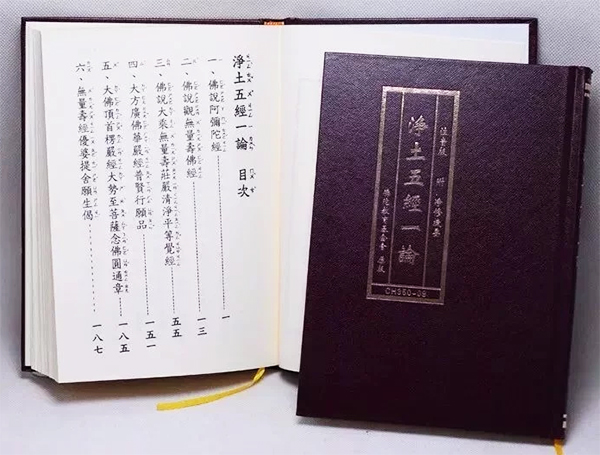 淨土五經一論 目次
一、佛說阿彌陀經 一
二、佛說觀無量壽佛經 一三
三、佛說大乘無量壽莊嚴清淨平等覺經 五五
四、大方廣佛華嚴經普賢行願品 一五一
五、大佛頂首楞嚴經大勢至菩薩念佛圓通章 一八五
六、無量壽經優婆提舍願生偈 一八七
注音版
淨土五經一論
CH360-05